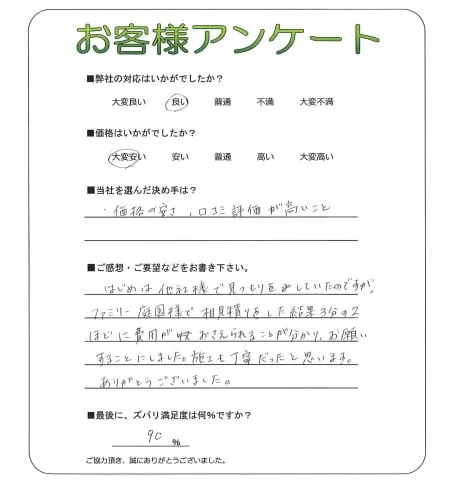 お客様アンケート
■弊社の対応はいかがでしたか？
大変良い 良い 普通 不満 大変不満
■価格はいかがでしたか？
大変安い 安い 普通 高い 大変高い
■当社を選んだ決め手は？
・価格の安さ、口コミ評価が高いこと
■ご感想・ご要望などをお書き下さい。
はじめは他社様で見つもりを出していたのですが、
ファミリー庭園様で相見積りをした結果3分の2
ほどに費用がおさえられることが分かり、お願い
することにしました。施工も丁寧だったと思います。
ありがとうございました。
■最後に、ズバリ満足度は何％ですか？
90 ％
ご協力頂き、誠にありがとうございました。